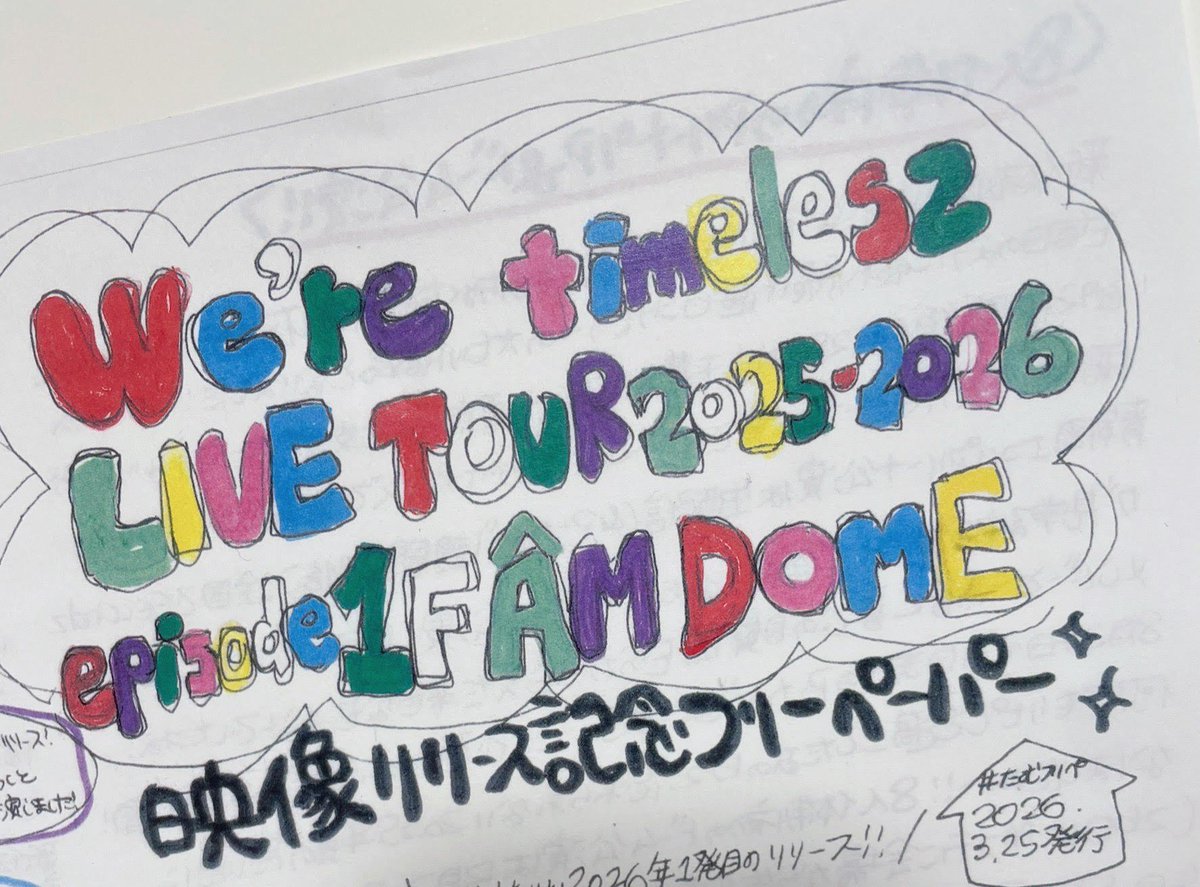 We're timelesz
LIVE TOUR 2025-2026
episode 1 FÂM DOME
映像リリース記念フリーペーパー
リリース!
演しました!
2026年1発目のリリース!!
#たむフリペ
2026.
3.25発行